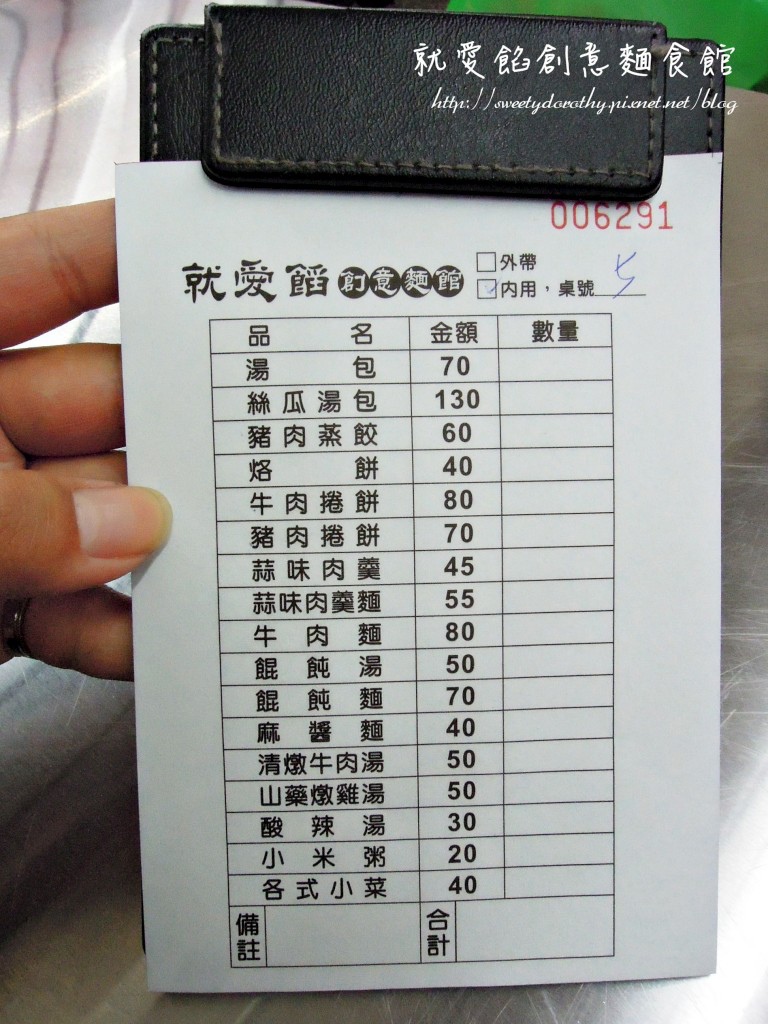 就愛餡創意麵食館
http://sweetydorothy.pixnet.net/blog
006291
就愛餡創意麵館
外帶
內用，桌號
品名 金額 數量
湯包 70
絲瓜湯包 130
豬肉蒸餃 60
烙餅 40
牛肉捲餅 80
豬肉捲餅 70
蒜味肉羹 45
蒜味肉羹麵 55
牛肉麵 80
餛飩湯 50
餛飩麵 70
麻醬麵 40
清燉牛肉湯 50
山藥燉雞湯 50
酸辣湯 30
小米粥 20
各式小菜 40
備註 合計